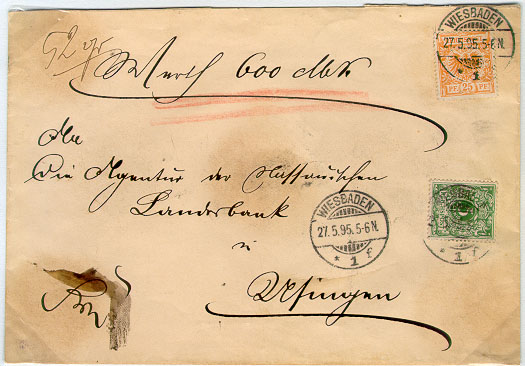 52 gr.
WIESBADEN
27.5.95.5-6N.
* 1 f
PF. 25 PF.
Werth 600 Mk
An
die Agentur der Nassauischen
Landesbank
WIESBADEN
27.5.95.5-6N.
* 1 f
in
Usingen